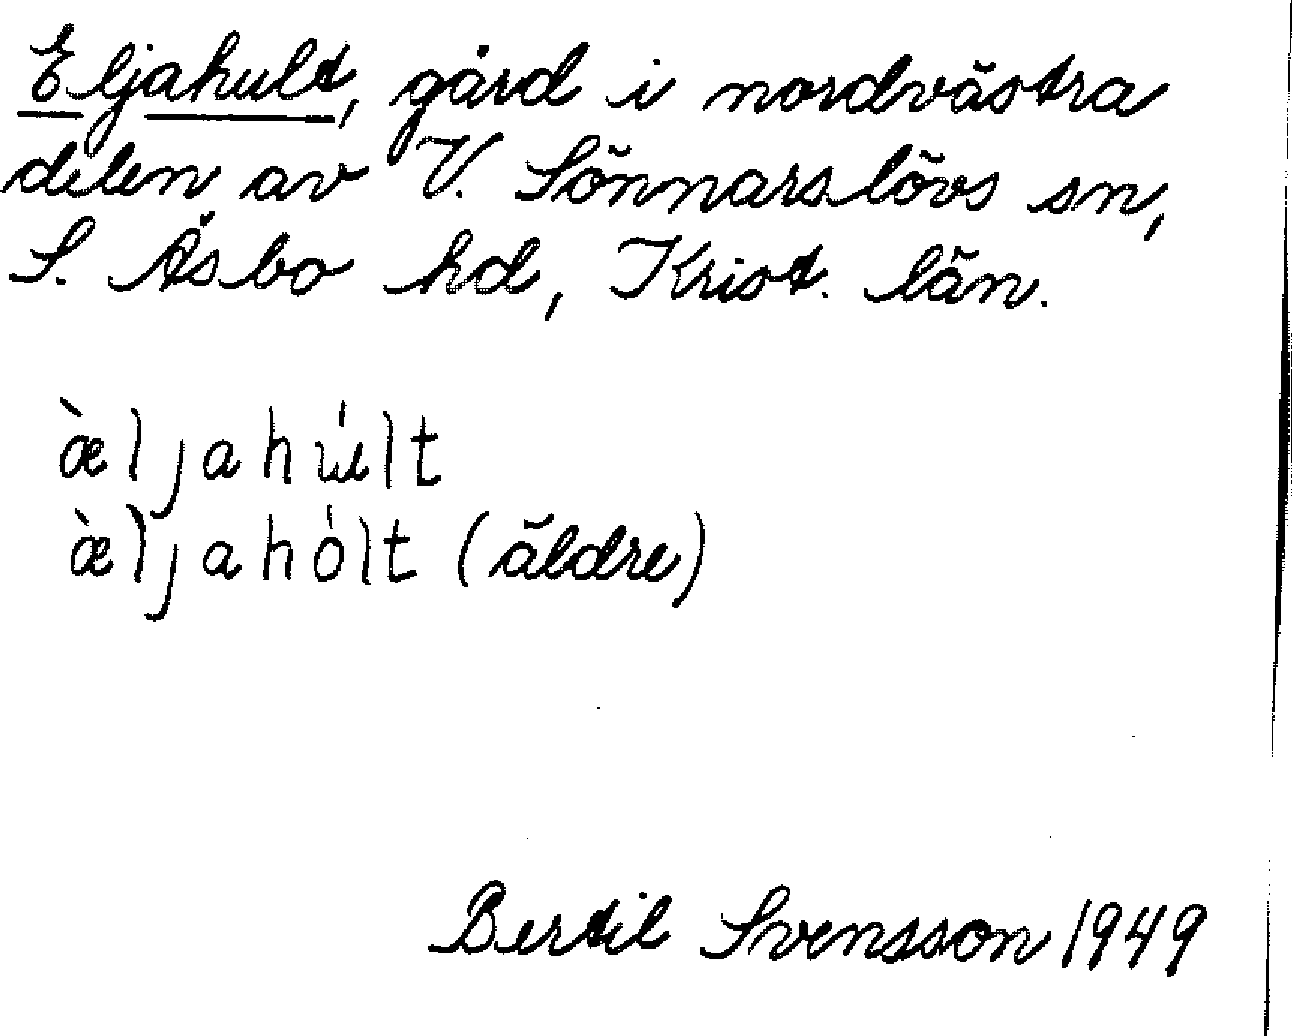 Eljahult, gård i nordvästra
delen av V. Sönnarslövs sn,
S. Åsbo hd, Krist. län.
æ̀ljahɯ́lt
æ̀ljahólt (äldre)
Bertil Svensson 1949